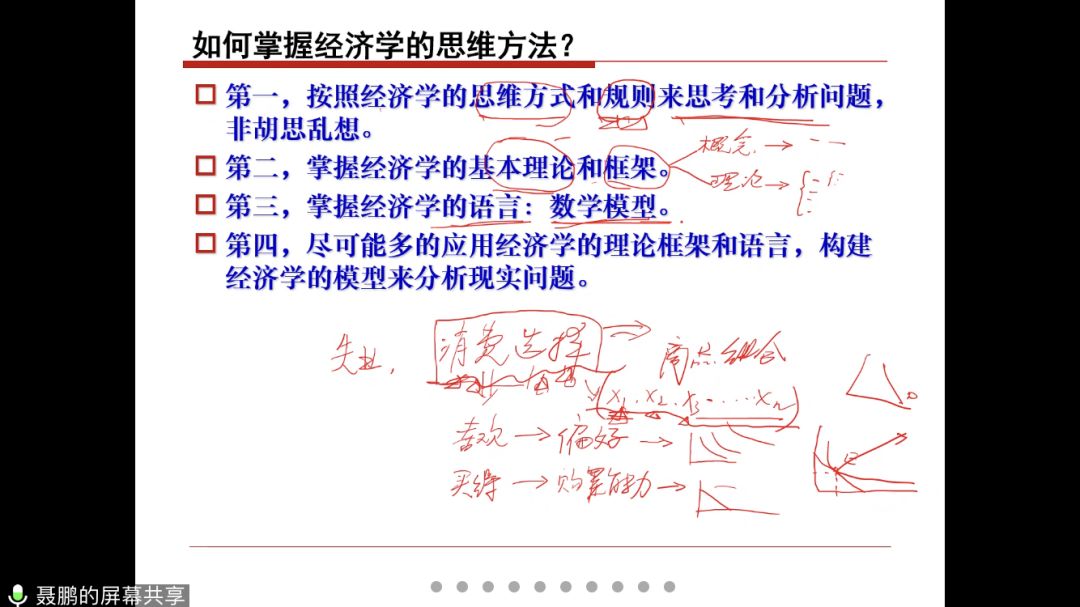 如何掌握经济学的思维方法？
第一，按照经济学的思维方式和规则来思考和分析问题，
非胡思乱想。
概念 →
第二，掌握经济学的基本理论和框架。
理论 →
第三，掌握经济学的语言：数学模型。
第四，尽可能多的应用经济学的理论框架和语言，构建
经济学的模型来分析现实问题。
失业， 消费选择 → 商品组合
(x₁, x₂, x₃ ······ xₙ)
喜欢 → 偏好 →
E
买得 → 购买能力 →
聂鹏的屏幕共享